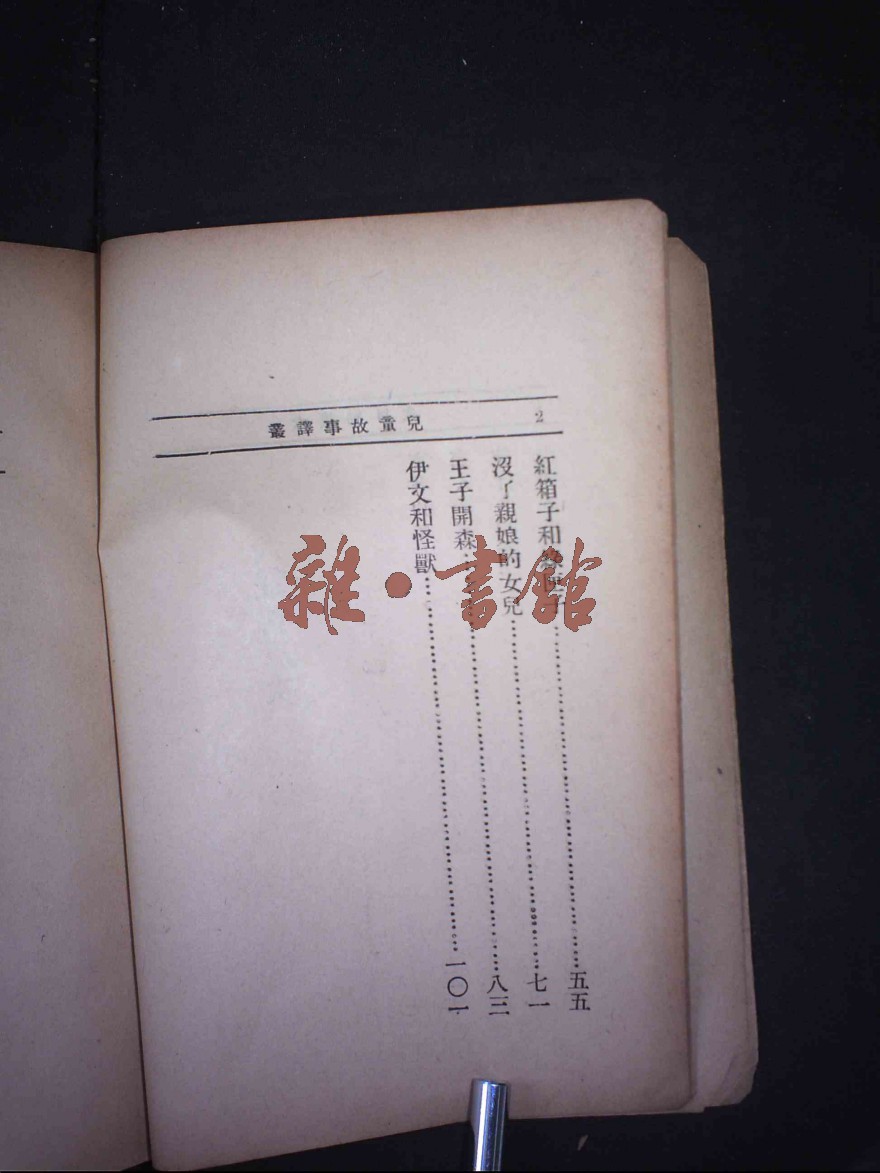 2
兒童故事譯叢
紅箱子和綠箱子……五五
沒了親娘的女兒……七一
王子開森……八三
伊文和怪獸……一〇一
雜·書館